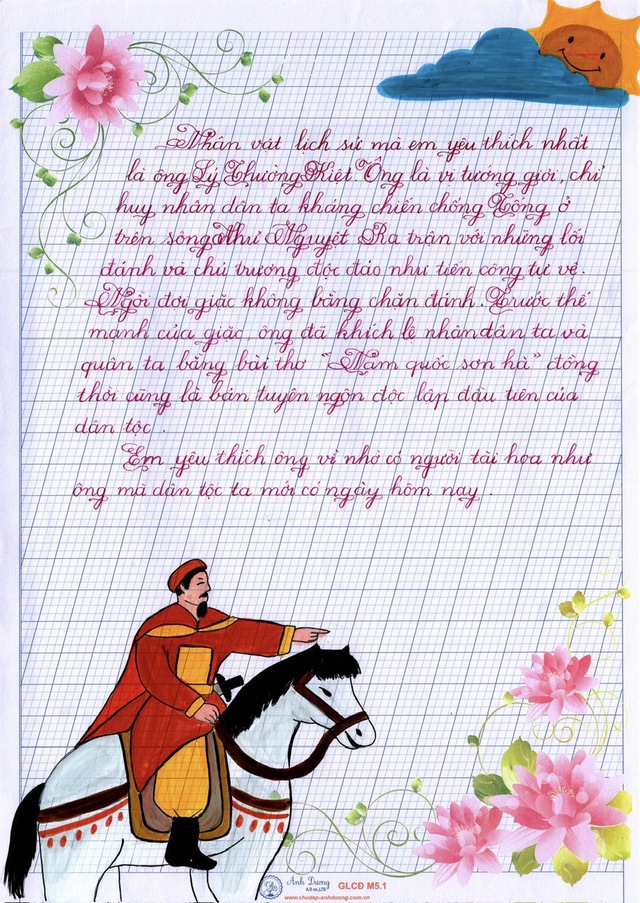 Nhân vật lịch sử mà em yêu thích nhất
là ông Lý Thường Kiệt. Ông là vị tướng giỏi, chỉ
huy nhân dân ta kháng chiến chống Tống ở
trên sông Như Nguyệt. Ra trận với những lối
đánh và chủ trương độc đáo như tiến công tự vệ.
Ngồi đợi giặc không bằng chặn đánh. Trước thế
mạnh của giặc, ông đã khích lệ nhân dân ta và
quân ta bằng bài thơ "Nam quốc sơn hà" đồng
thời cũng là bản tuyên ngôn độc lập đầu tiên của
dân tộc.
Em yêu thích ông vì nhờ có người tài hoa như
ông mà dân tộc ta mới có ngày hôm nay.
Anh Dương
A.D co.,LTD
GLCĐ M5.1
www.chudep-anhduong.com.vn